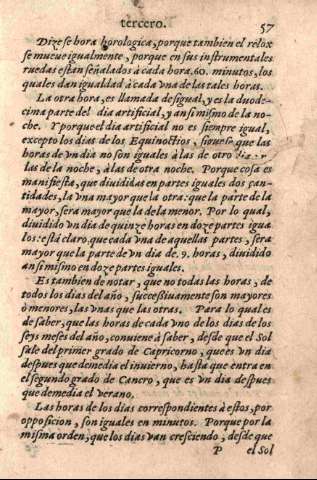 tercero. 57
Dizese hora horologica, porque tambien el relox
se mueue igualmente, porque en sus instrumentales
ruedas estàn señalados à cada hora.60. minutos, los
quales dan igualdad à cada vna de las tales horas.
La otra hora, es llamada desigual, y es la duode-
cima parte del dia artificial, y ansi mismo de la no-
che. Y porque el dia artificial no es siempre igual,
excepto los dias de los Equinoctios, siguese que las
horas de vn dia no son iguales à las de otro dia: ni
las de la noche, à las de otra noche. Porque cosa es
manifiesta, que diuididas en partes iguales dos can-
tidades, la vna mayor que la otra: que la parte de la
mayor, sera mayor que la de la menor. Por lo qual,
diuidido vn dia de quinze horas en doze partes igua
les: està claro, que cada vna de aquellas partes, sera
mayor que la parte de vn dia de .9. horas, diuidido
ansi mismo en doze partes iguales.
Es tambien de notar, que no todas las horas, de
todos los dias del año, successiuamente son mayores
ò menores, las vnas que las otras. Para lo qual es
de saber, que las horas de cada vno de los dias de los
seys meses del año, conviene à saber, desde que el Sol
sale del primer grado de Capricorno, que es vn dia
despues que demedia el inuierno, hasta que entra en
el segundo grado de Cancro, que es vn dia despues
que demedia el verano.
Las horas de los dias correspondientes à estos, por
opposicion, son iguales en minutos. Porque por la
misma orden, que los dias van cresciendo, desde que
P el Sol